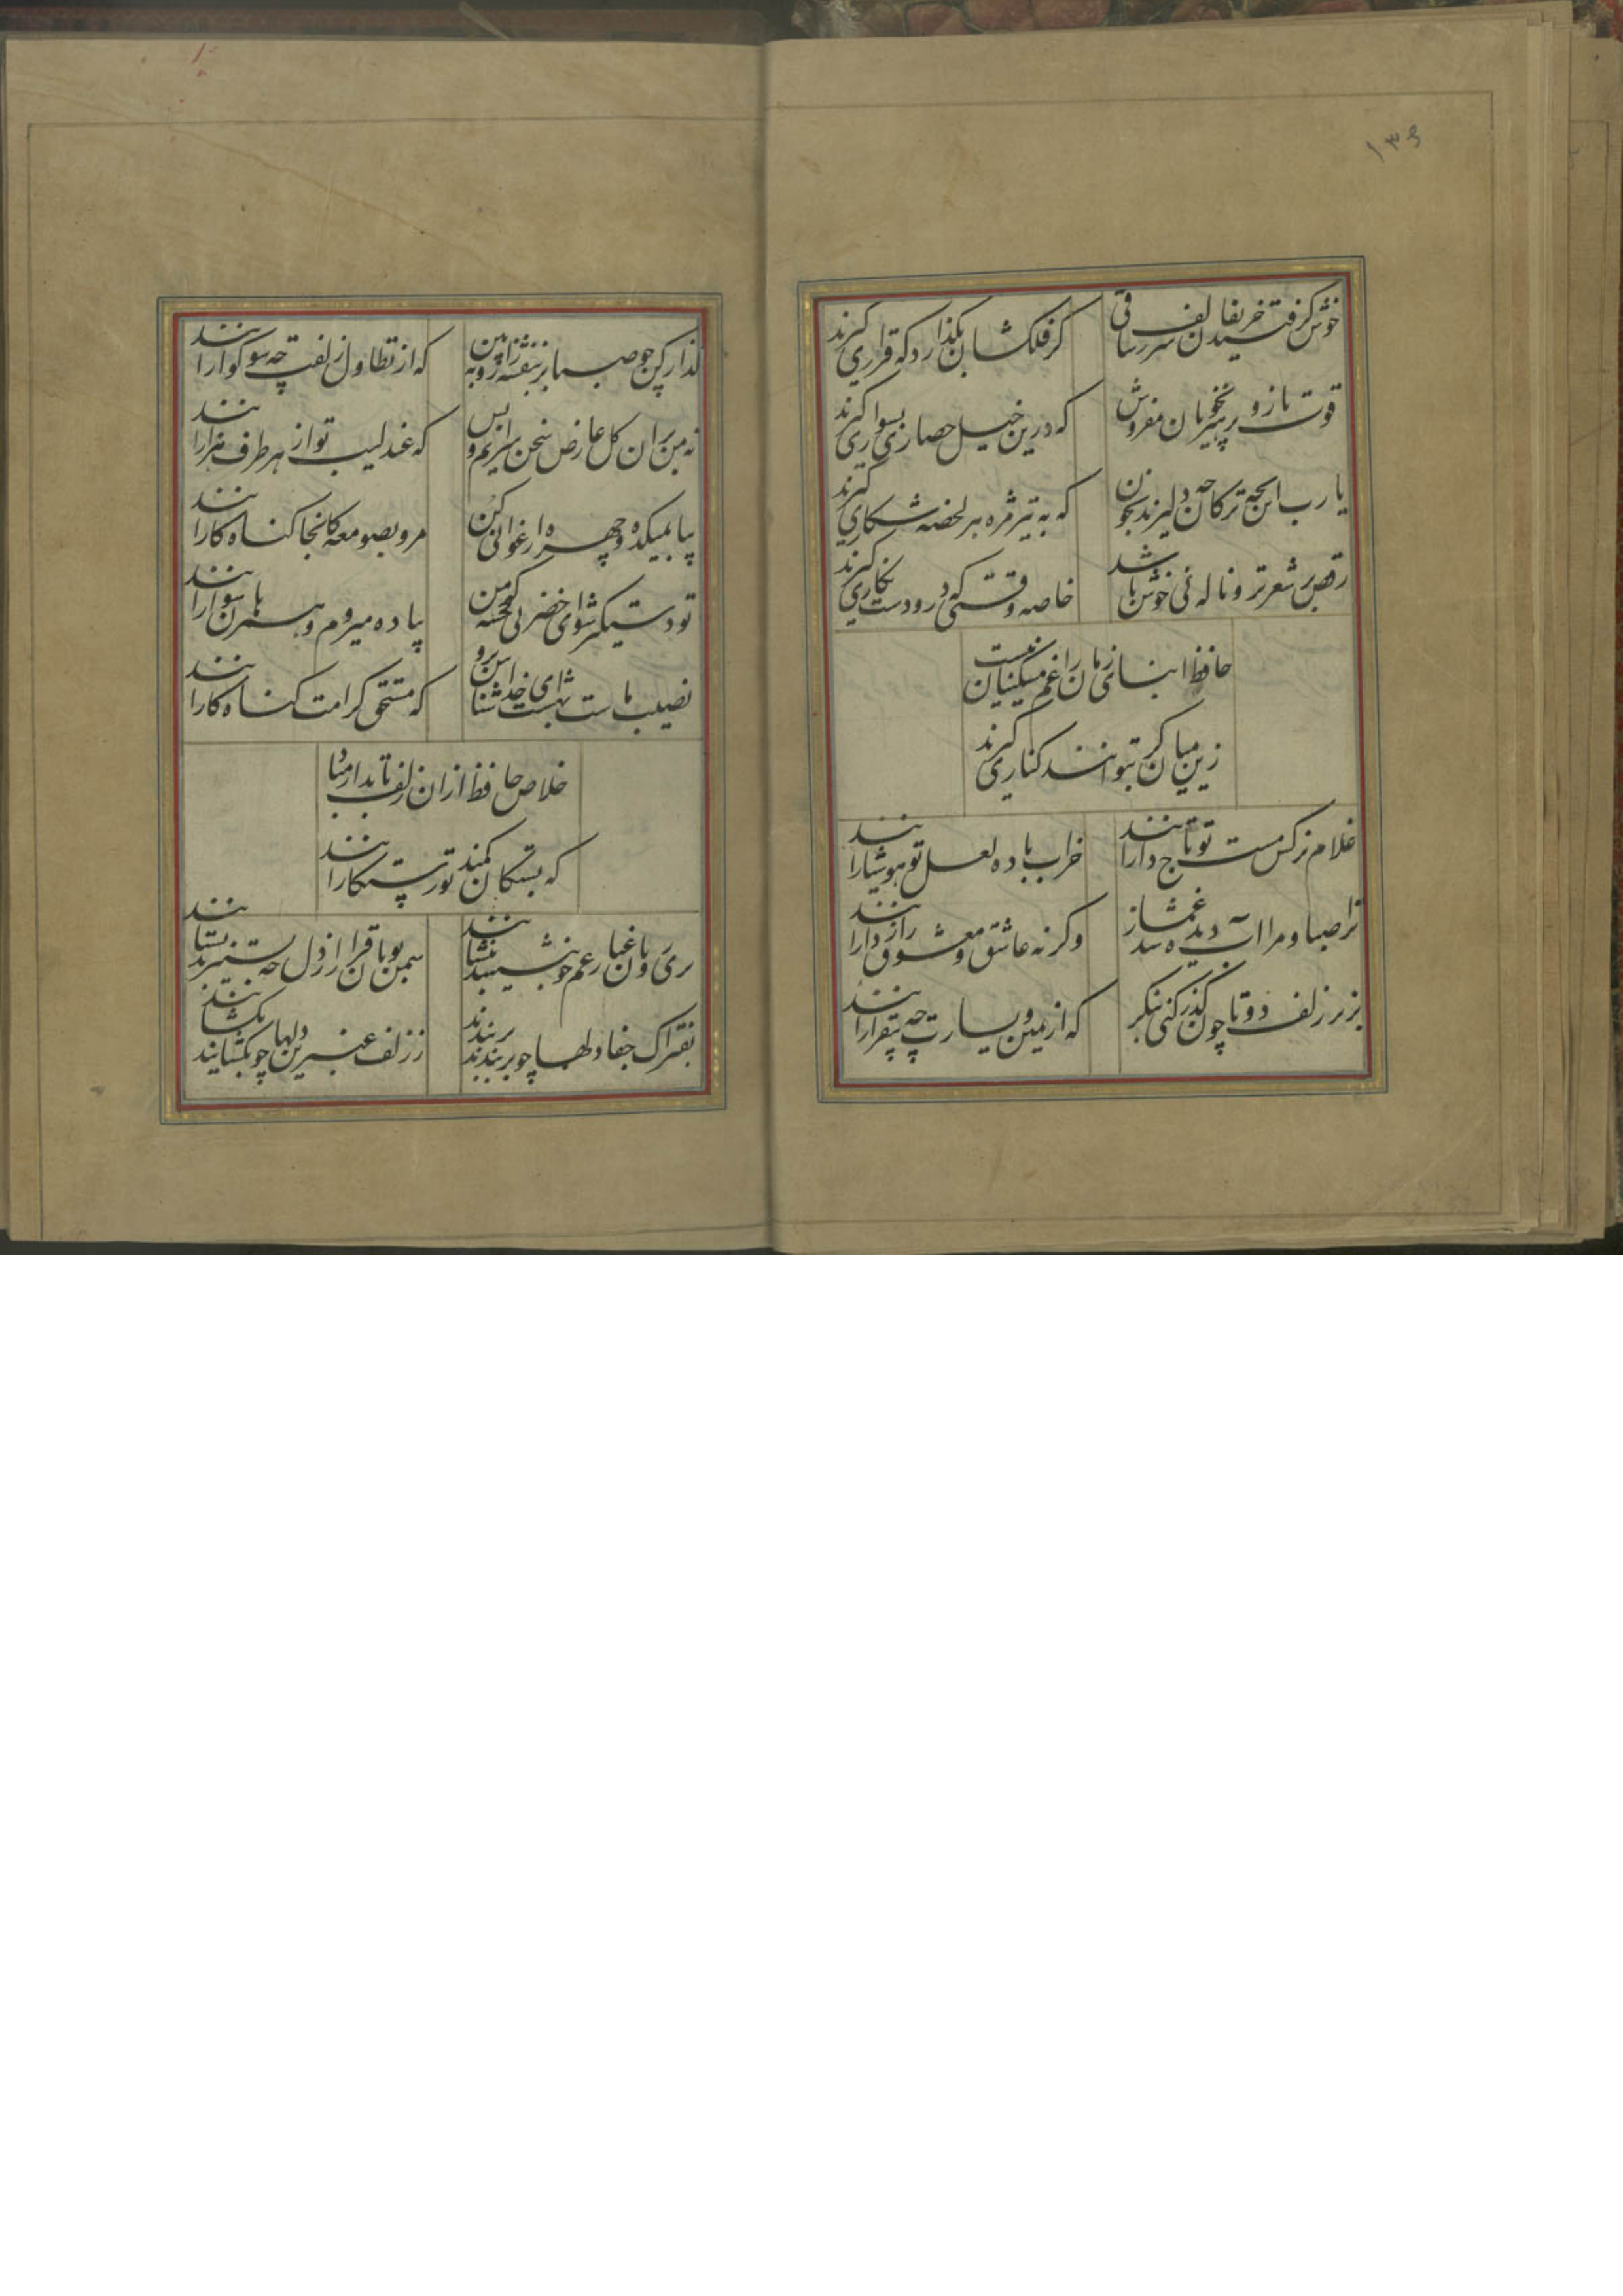 ۱۳۶
خوش گرفتند حریفان سر زلف ساقی
کر فلکشان بگذارد که قراری کیرند
قوت بازوی پرهیز بخوبان مفروش
که درین خیل حصاری بسواری کیرند
یا رب این بچه ترکان چه دلیرند بخون
که به تیر مژه هر لحضه شکاری کیرند
رقص بر شعر تر و ناله نی خوش باشد
خاصه وقتی که در و دست نکاری کیرند
حافظ ابنای زمان را غم مسکینان نیست
زین میان کر بتوانند کناری کیرند
غلام نرکس مست تو تاجدارانند
خراب باده لعل تو هوشیارانند
ترا صبا و مرا آب دیده شد غماز
وکرنه عاشق و معشوق رازدارانند
بزیر زلف دوتا چون کذر کنی بنکر
که از یمین و یسارت چه بیقرارانند
کذار کن چو صبا بر بنفشه زار و ببین
که از تطاول زلفت چه سوکوارانند
نه من بر ان کل عارض سخن سرایم و بس
که عندلیب تو از هر طرف هزارانند
بیا بمیکده و چهره ارغوانی کن
مرو بصومعه کانجا کناه کارانند
تو دستکیر شو ای خضر پی خجسته که من
پیاده میروم و همرهان سوارانند
نصیب ماست بهشت ای خدا شناس برو
که مستحق کرامت کناه کارانند
خلاص حافظ از ان زلف تابدار مباد
که بستکان کمند تو رستکارانند
سمن بویان قرار از دل چو بستیزند بستانند
بفتراک جفا دلها چو بربندند بربندند
ز زلف عنبرین دلها چو بکشایند بکشانند